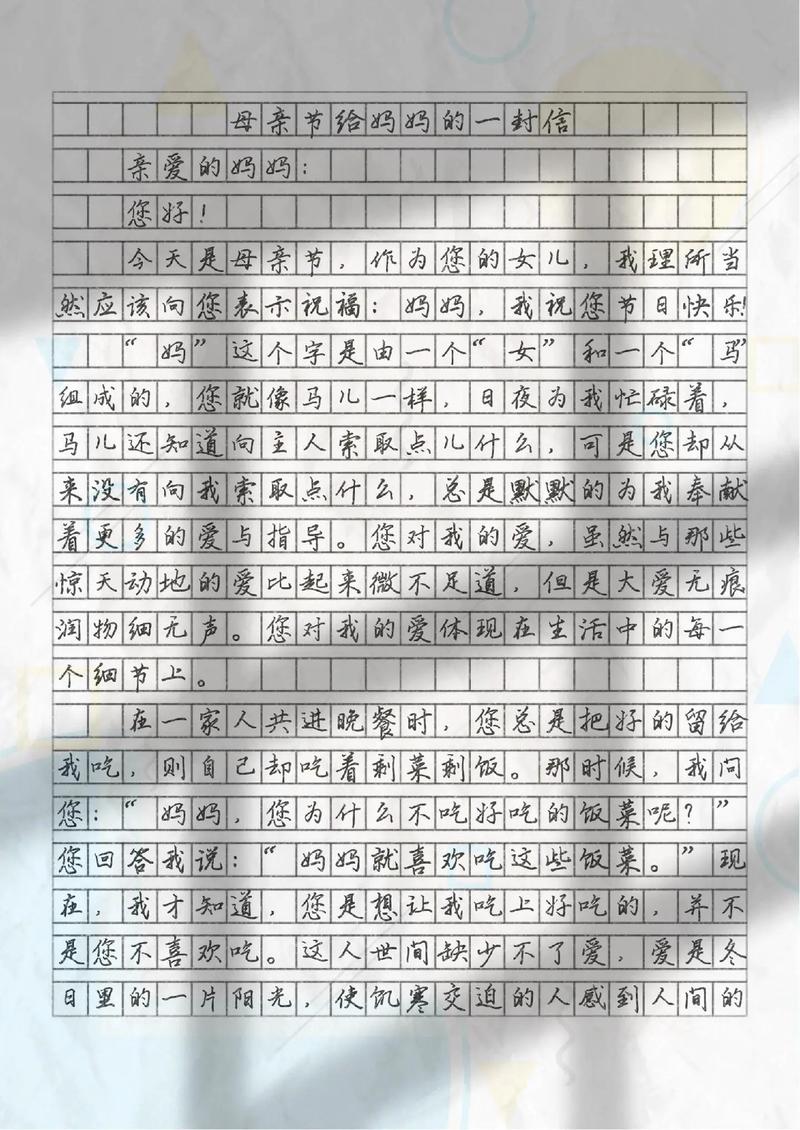 母亲节给妈妈的一封信
亲爱的妈妈：
您好！
今天是母亲节，作为您的女儿，我理所当
然应该向您表示祝福：妈妈，我祝您节日快乐！
“妈”这个字是由一个“女”和一个“马”
组成的，您就像马儿一样，日夜为我忙碌着，
马儿还知道向主人索取点儿什么，可是您却从
来没有向我索取点什么，总是默默的为我奉献
着更多的爱与指导。您对我的爱，虽然与那些
惊天动地的爱比起来微不足道，但是大爱无痕
润物细无声。您对我的爱体现在生活中的每一
个细节上。
在一家人共进晚餐时，您总是把好的留给
我吃，则自己却吃着剩菜剩饭。那时候，我问
您：“妈妈，您为什么不吃好吃的饭菜呢？”
您回答我说：“妈妈就喜欢吃这些饭菜。”现
在，我才知道，您是想让我吃上好吃的，并不
是您不喜欢吃。这人世间缺少不了爱，爱是冬
日里的一片阳光，使饥寒交迫的人感到人间的